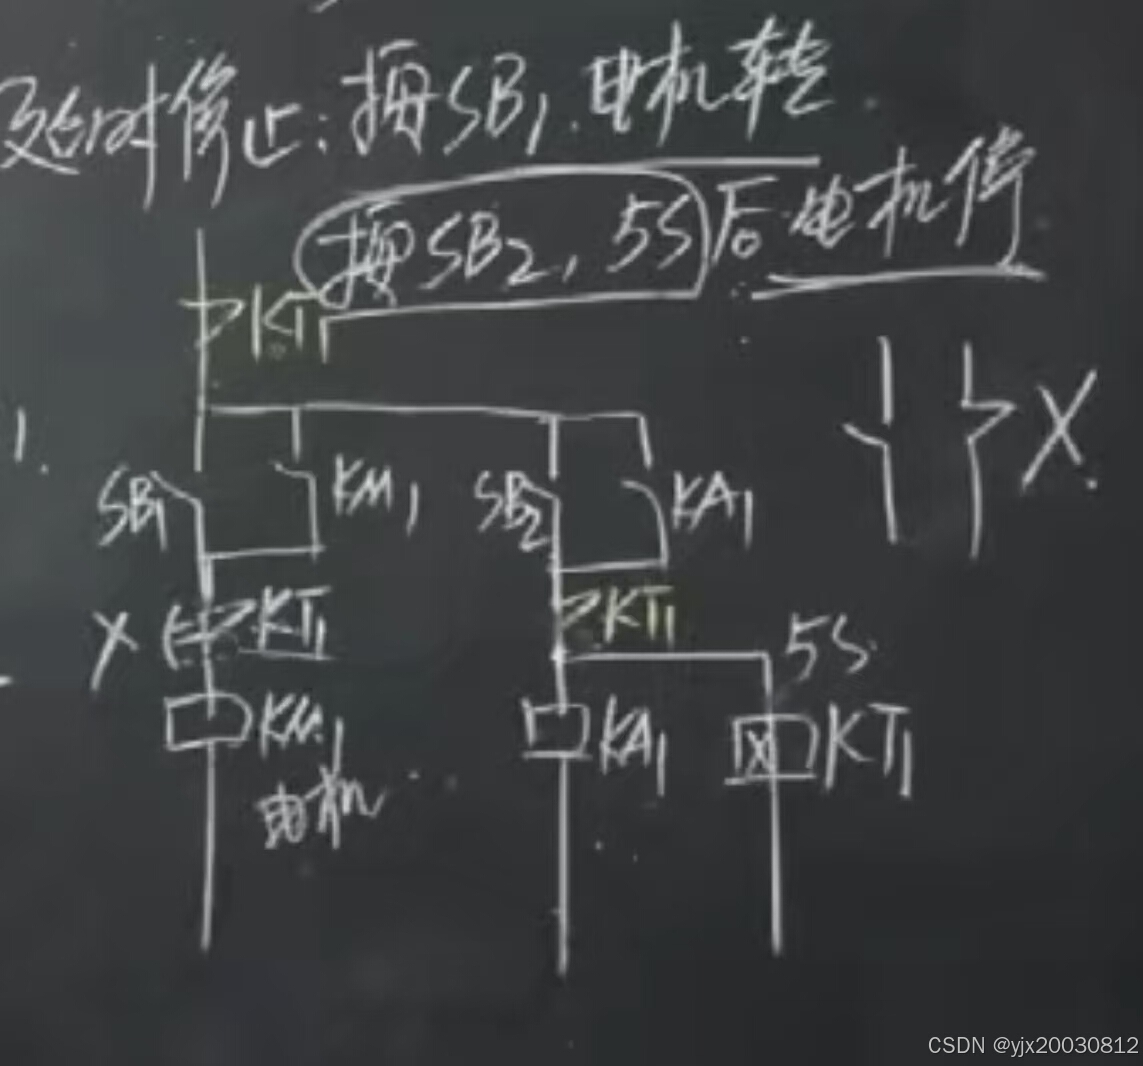 延时停止:按SB1.电机转
按SB2,5S后电机停
KT1
1.
SB1
KM1
SB2
KA1
X
X
KT1
KT1
5S
KM1
KA1
KT1
电机
CSDN @yjx20030812